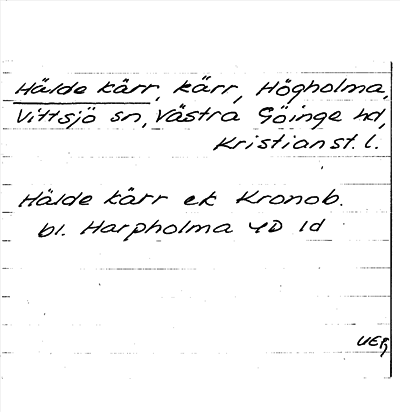 Hälde kärr, kärr, Högholma,
Vittsjö sn, Västra Göinge hd,
Kristianst. l.
Hälde kärr ek Kronob.
bl. Harpholma 4D 1d
UER